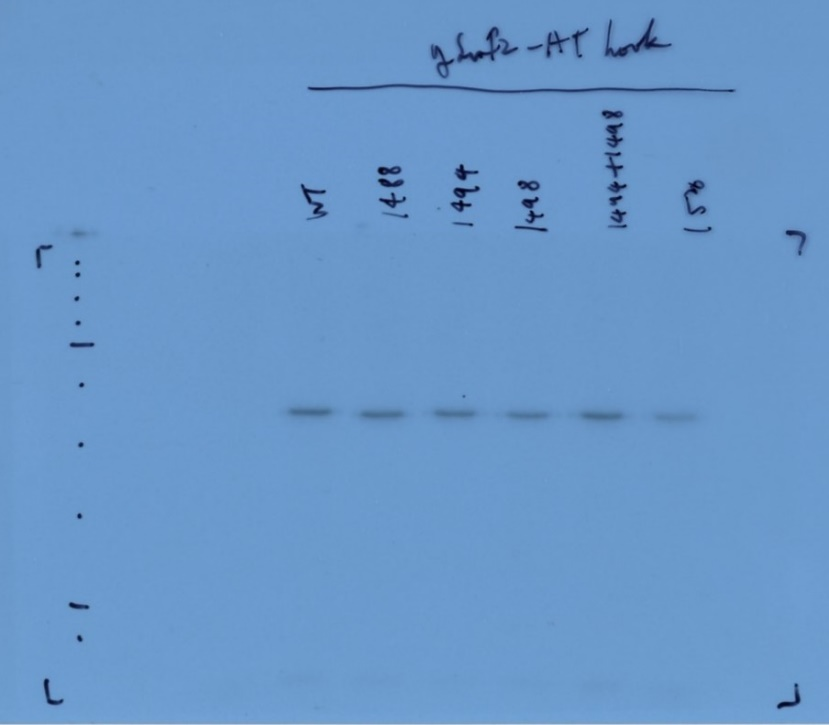 ySnf2-AT hook
WT 1488 1494 1498 1494+1498